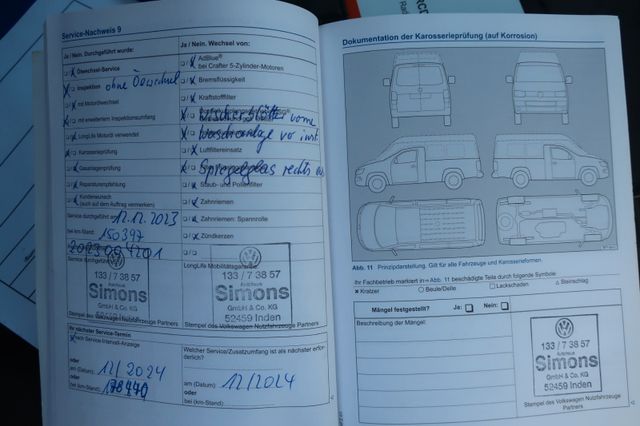 Service-Nachweis 9
Ja / Nein. Durchgeführt wurde:
Ölwechsel-Service
Inspektion ohne Ölwechsel
mit Motorölwechsel
mit erweitertem Inspektionsumfang
LongLife Motoröl verwendet
Karosserieprüfung
Gasanlagenprüfung
Reparaturempfehlung
Kundenwunsch
(auch auf dem Auftrag vermerken)
Service durchgeführt 12.12.2023
bei km-Stand: 150397
Service durchgeführt
133 / 7 38 57
Autohaus
Simons
GmbH & Co. KG
52459 Inden
Stempel des Volkswagen Nutzfahrzeuge Partners
Ihr nächster Service-Termin
nach Service-Intervall-Anzeige
oder
am (Datum): 12/2024
oder
bei (km-Stand):
Ja / Nein. Wechsel von:
AdBlue®
bei Crafter 5-Zylinder-Motoren
Bremsflüssigkeit
Kraftstofffilter
Wischerblätter vorne
Waschanlage vor
Luftfiltereinsatz
Spiegelglas rechts
Staub- und Pollenfilter
Zahnriemen
Zahnriemen: Spannrolle
Zündkerzen
LongLife Mobilitätsgarantie
133 / 7 38 57
Autohaus
Simons
GmbH & Co. KG
52459 Inden
Stempel des Volkswagen Nutzfahrzeuge Partners
Welcher Service/Zusatzumfang ist als nächster erforderlich?
am (Datum): 12/2024
oder
bei (km-Stand):
Dokumentation der Karosserieprüfung (auf Korrosion)
Abb. 11 Prinzipdarstellung. Gilt für alle Fahrzeuge und Karosserieformen.
Ihr Fachbetrieb markiert in Abb. 11 beschädigte Teile durch folgende Symbole:
Kratzer
Beule/Delle
Lackschaden
Steinschlag
Mängel festgestellt?
Ja:
Nein:
Beschreibung der Mängel:
133 / 7 38 57
Autohaus
Simons
GmbH & Co. KG
52459 Inden
Stempel des Volkswagen Nutzfahrzeuge
Partners